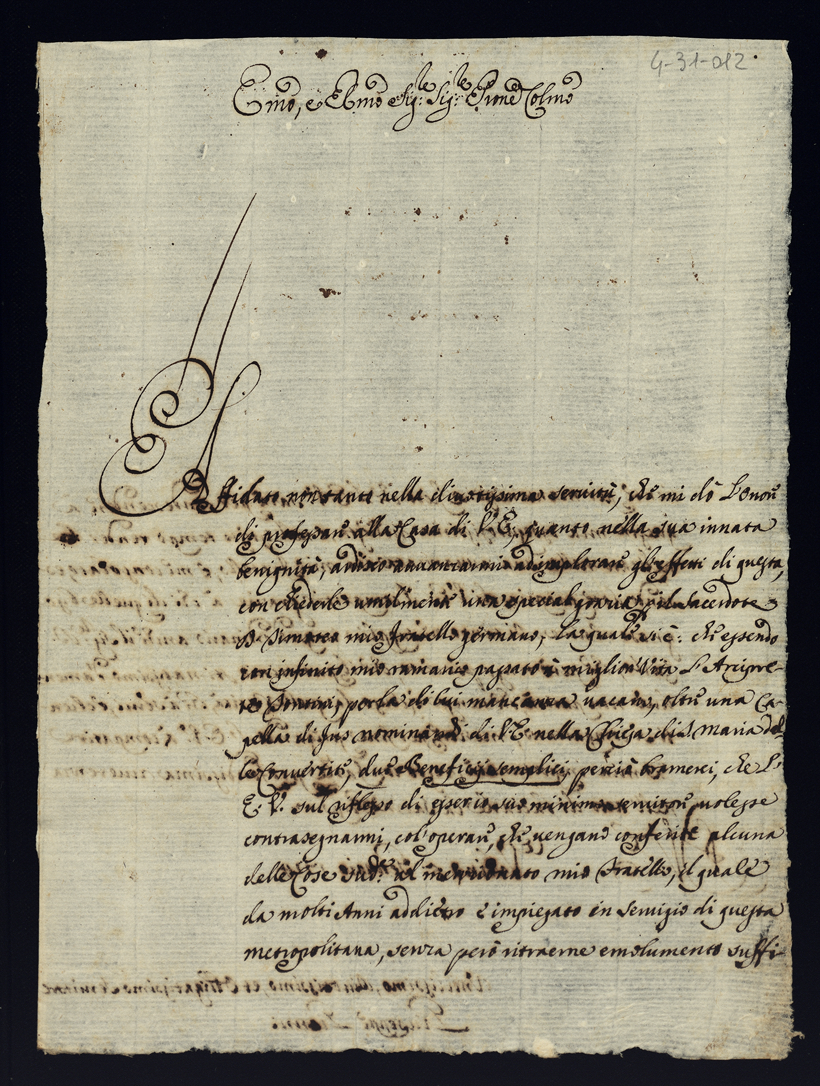 4-31-012
Emo, e Rmo Sig:re Sig:re Prone Colmo
Affidato non tanto nella divotissima servitù, che mi dò l'onore
di professare alla Casa di V. E. quanto nella sua innata
benignità, ardisco avanzarmi ad implorare gl'effetti di questa,
con chiederle umilmente una special grazia pel Sacerdote
D. Simone mio fratello germano, la quale si è: che essendo
con infinito mio ramarico passato à miglior Vita l'Arcipre-
te Pontini, per la di lui mancanza vacano, oltre una Ca-
pella di Jus nominandi di V. E. nella Chiesa di S. Maria del
le Convertite, due Beneficij semplici, perciò bramerei, che l'
E. V. sul riflesso di esserio suo minimo servitore volesse
contrasegnarmi, col'operare, che vengano conferite alcuna
delle Cose sud.e al mentovato mio Fratello, il quale
da molti Anni addietro è impiegato in servigio di questa
metropolitana, senza però ritraerne emolumento suffi-